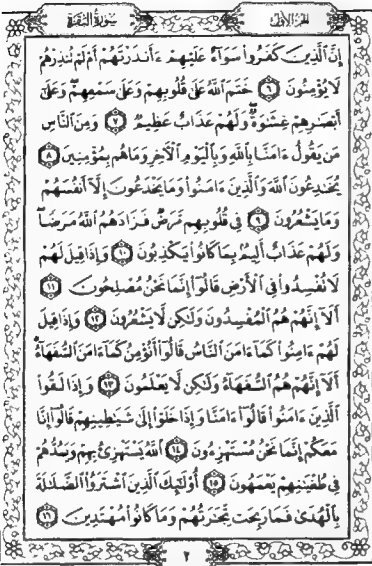 سورة البقرة
الجزء الأول
إِنَّ ٱلَّذِينَ كَفَرُوا۟ سَوَآءٌ عَلَيْهِمْ ءَأَنذَرْتَهُمْ أَمْ لَمْ تُنذِرْهُمْ
لَا يُؤْمِنُونَ ٦ خَتَمَ ٱللَّهُ عَلَىٰ قُلُوبِهِمْ وَعَلَىٰ سَمْعِهِمْ ۖ وَعَلَىٰٓ
أَبْصَٰرِهِمْ غِشَٰوَةٌ ۖ وَلَهُمْ عَذَابٌ عَظِيمٌ ٧ وَمِنَ ٱلنَّاسِ
مَن يَقُولُ ءَامَنَّا بِٱللَّهِ وَبِٱلْيَوْمِ ٱلْءَاخِرِ وَمَا هُم بِمُؤْمِنِينَ ٨
يُخَٰدِعُونَ ٱللَّهَ وَٱلَّذِينَ ءَامَنُوا۟ وَمَا يَخْدَعُونَ إِلَّآ أَنفُسَهُمْ
وَمَا يَشْعُرُونَ ٩ فِى قُلُوبِهِم مَّرَضٌ فَزَادَهُمُ ٱللَّهُ مَرَضًا ۖ
وَلَهُمْ عَذَابٌ أَلِيمٌۢ بِمَا كَانُوا۟ يَكْذِبُونَ ١٠ وَإِذَا قِيلَ لَهُمْ
لَا تُفْسِدُوا۟ فِى ٱلْأَرْضِ قَالُوٓا۟ إِنَّمَا نَحْنُ مُصْلِحُونَ ١١
أَلَآ إِنَّهُمْ هُمُ ٱلْمُفْسِدُونَ وَلَٰكِن لَّا يَشْعُرُونَ ١٢ وَإِذَا قِيلَ
لَهُمْ ءَامِنُوا۟ كَمَآ ءَامَنَ ٱلنَّاسُ قَالُوٓا۟ أَنُؤْمِنُ كَمَآ ءَامَنَ ٱلسُّفَهَآءُ ۗ
أَلَآ إِنَّهُمْ هُمُ ٱلسُّفَهَآءُ وَلَٰكِن لَّا يَعْلَمُونَ ١٣ وَإِذَا لَقُوا۟
ٱلَّذِينَ ءَامَنُوا۟ قَالُوٓا۟ ءَامَنَّا وَإِذَا خَلَوْا۟ إِلَىٰ شَيَٰطِينِهِمْ قَالُوٓا۟ إِنَّا
مَعَكُمْ إِنَّمَا نَحْنُ مُسْتَهْزِءُونَ ١٤ ٱللَّهُ يَسْتَهْزِئُ بِهِمْ وَيَمُدُّهُمْ
فِى طُغْيَٰنِهِمْ يَعْمَهُونَ ١٥ أُو۟لَٰٓئِكَ ٱلَّذِينَ ٱشْتَرَوُا۟ ٱلضَّلَٰلَةَ
بِٱلْهُدَىٰ فَمَا رَبِحَت تِّجَٰرَتُهُمْ وَمَا كَانُوا۟ مُهْتَدِينَ ١٦
٢